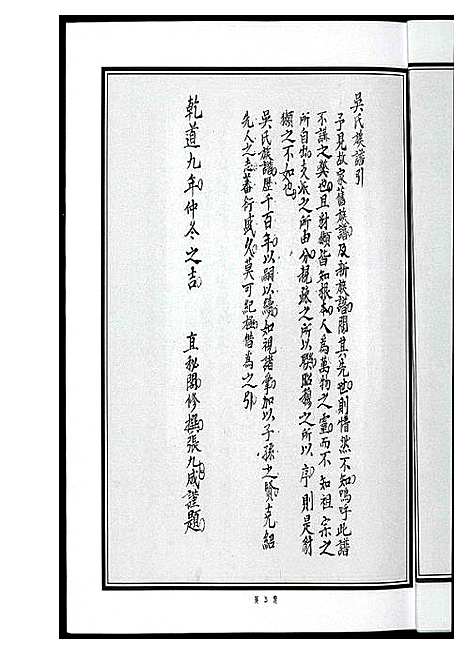 吳氏族譜引
予見故家舊族譜及新族譜閱其先世則惜然不知嗚呼此譜
不講之獘也且豺獺皆知報本人為萬物之靈而不知祖宗之
所自出支派之所由分親疎之所以聯昭穆之所以序則是豺
獺之不如也
吳氏族譜歷千百年以嗣以續如視諸掌加以子孫之賢克紹
先人之志蕃衍盛久莫可紀極僭為之引
乾道九年仲冬之吉 直秘閣修撰張九成謹題
第3卷